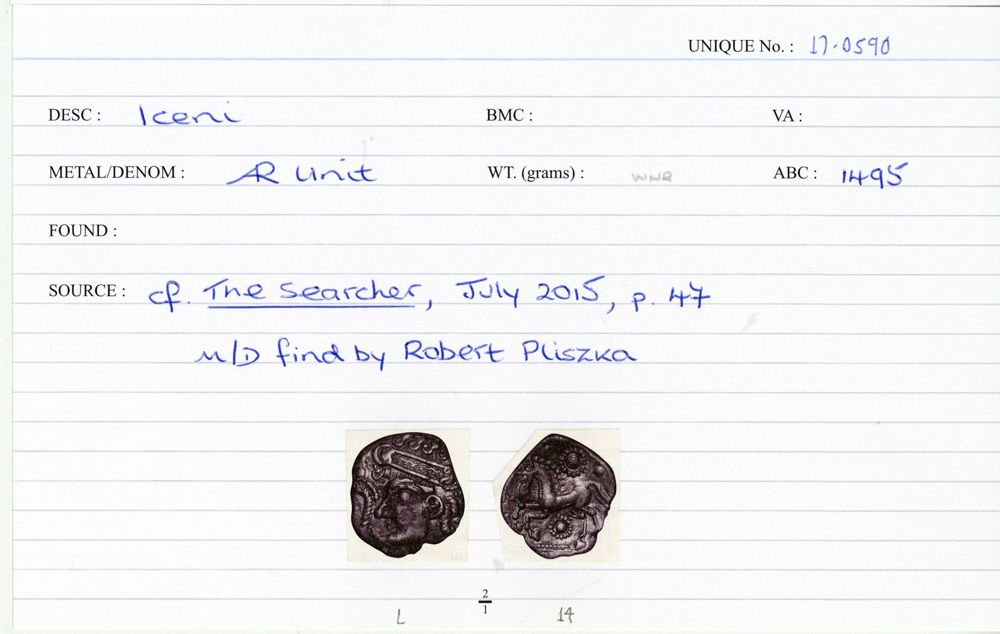 UNIQUE No. : 17.0590
DESC : Iceni BMC : VA :
METAL/DENOM : AR Unit WT. (grams) : wnr ABC : 1495
FOUND :
SOURCE : cf. The Searcher, July 2015, p. 47
M/D find by Robert Pliszka
2
1
L 14